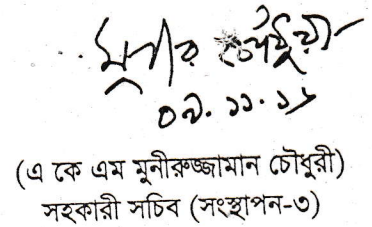 মুনীর চৌধুরী
০৯.১১.১৬
(এ কে এম মুনীরুজ্জামান চৌধুরী)
সহকারী সচিব (সংস্থাপন-৩)